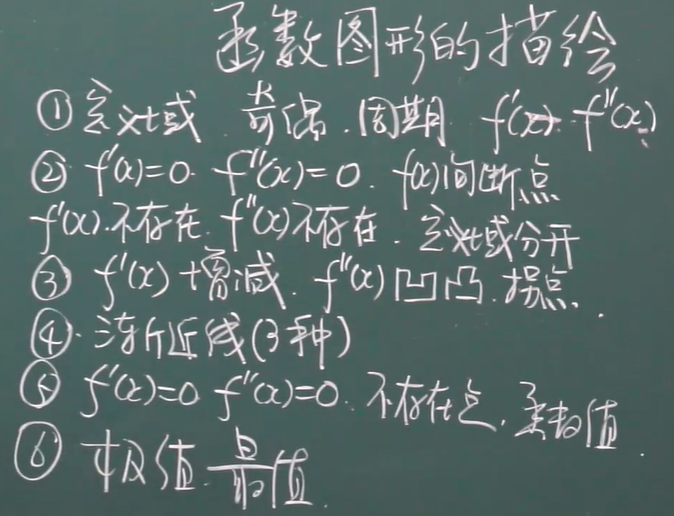 函数图形的描绘
① 定义域 奇偶.周期 f'(x) f''(x)
② f'(x)=0. f''(x)=0. f(x)间断点
f'(x).不存在. f''(x)不存在. 定义域分开
③ f'(x) 增减. f''(x)凹凸.拐点.
④. 渐近线(3种)
⑤ f'(x)=0 f''(x)=0. 不存在点. 求值
⑥ 极值.最值.